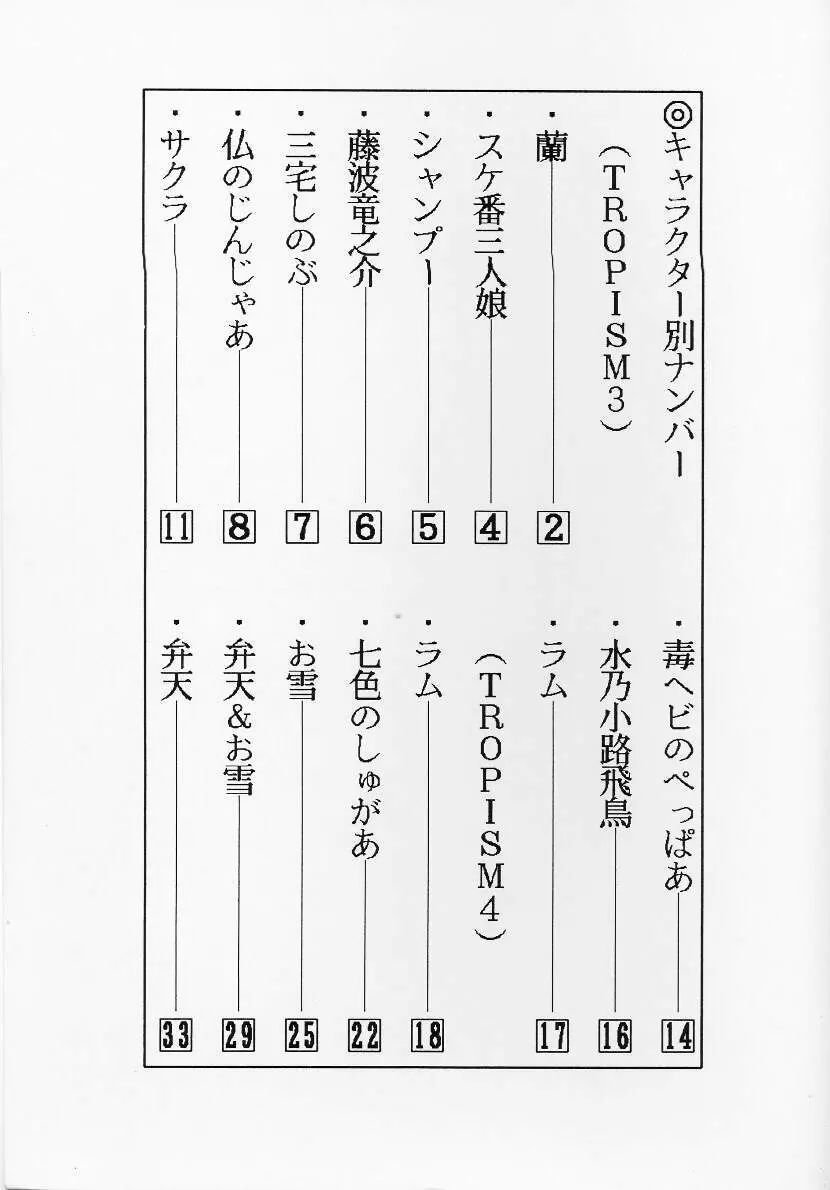 ◎キャラクター別ナンバー
（TROPISM3）
・蘭 2
・スケ番三人娘 4
・シャンプー 5
・藤波竜之介 6
・三宅しのぶ 7
・仏のじんじゃあ 8
・サクラ 11
・毒ヘビのぺっぱあ 14
・水乃小路飛鳥 16
・ラム 17
（TROPISM4）
・ラム 18
・七色のしゅがあ 22
・お雪 25
・弁天＆お雪 29
・弁天 33